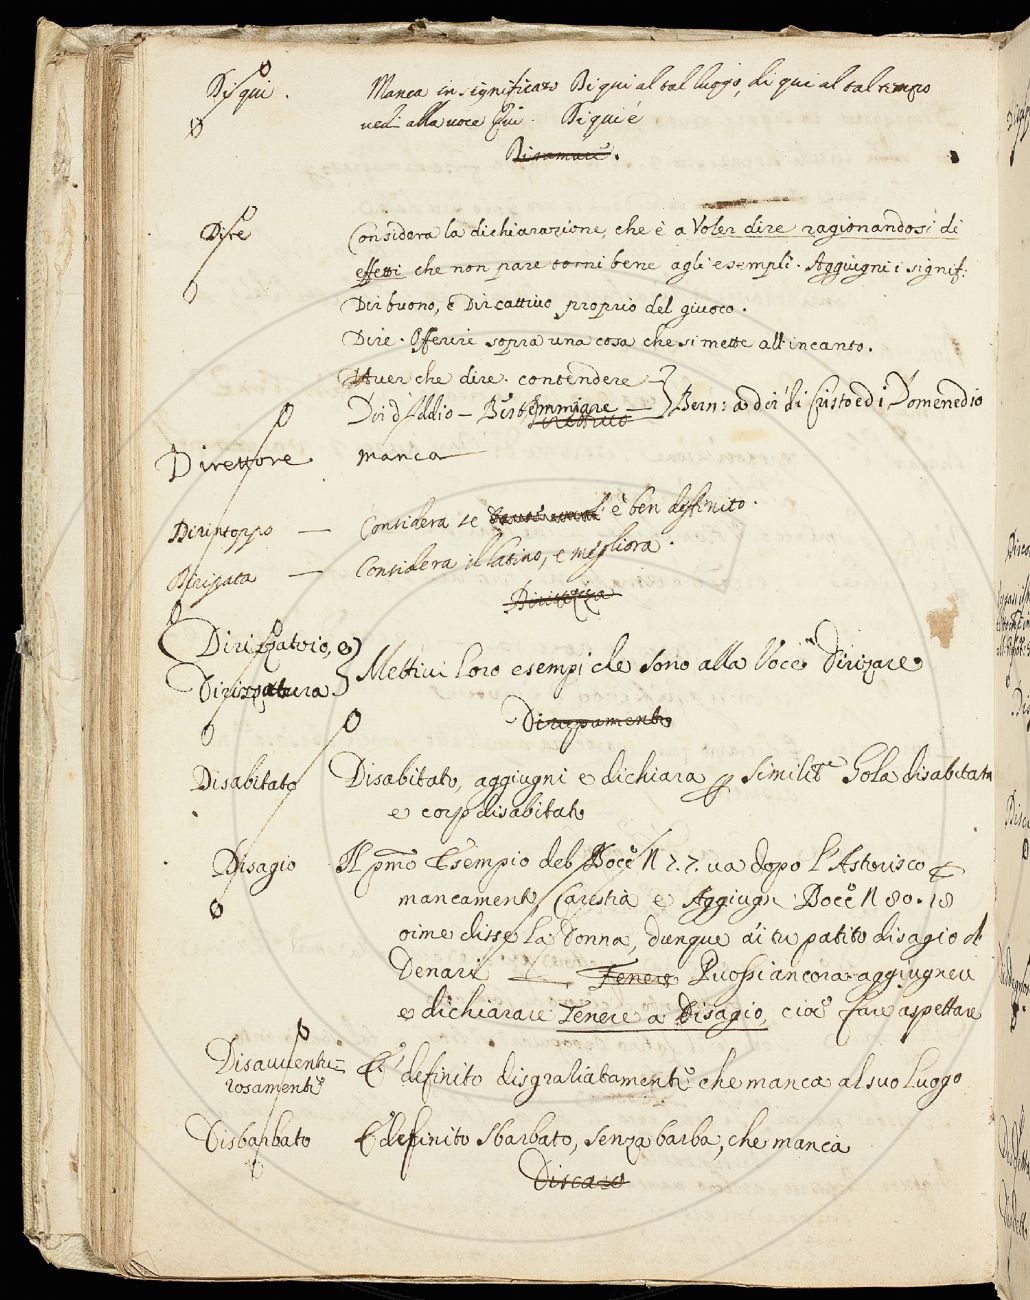 Di qui. Manca in significato Di qui al tal luogo, di qui al tal tempo
vedi alla voce Qui. Di qui è
Diramare.
Dire Considera la dichiarazione, che è a Voler dire ragionandosi di
effetti che non pare torni bene agli esempli. Aggiugni i signif:
Dir buono, e Dir cattivo proprio del giuoco.
Dire. Offerire sopra una cosa che si mette all'incanto.
Aver che dire. contendere
Dir d'Iddio — Bestemmiare — Bern: a dir di Cristo e di Domenedio
Direttore manca
Dirintoppo — Considera se è ben definito.
Dirizzata — Considera il latino, e migliora.
Dirittezza
Dirizzatoio, e
Dirizzatura Mettivi loro esempi che sono alla Voce Dirizzare
Dirupamento
Disabitato Disabitato, aggiugni e dichiara p similit.e Gola disabitata
e corpo disabitato
Disagio Il pmo Esempio del Bocc. N 7.7. va dopo l'Asterisco
mancamento Carestia e Aggiugni Bocc. N 80.18
oime disse la Donna, dunque ai tu patito disagio di
Denari — Tenere Puossi ancora aggiugnere
e dichiarare Tenere a Disagio, cioè fare aspettare
Disavventu=
rosamente E' definito disgraziatamente che manca al suo luogo
Disbarbato E' definito sbarbato, senza barba, che manca
Discaro